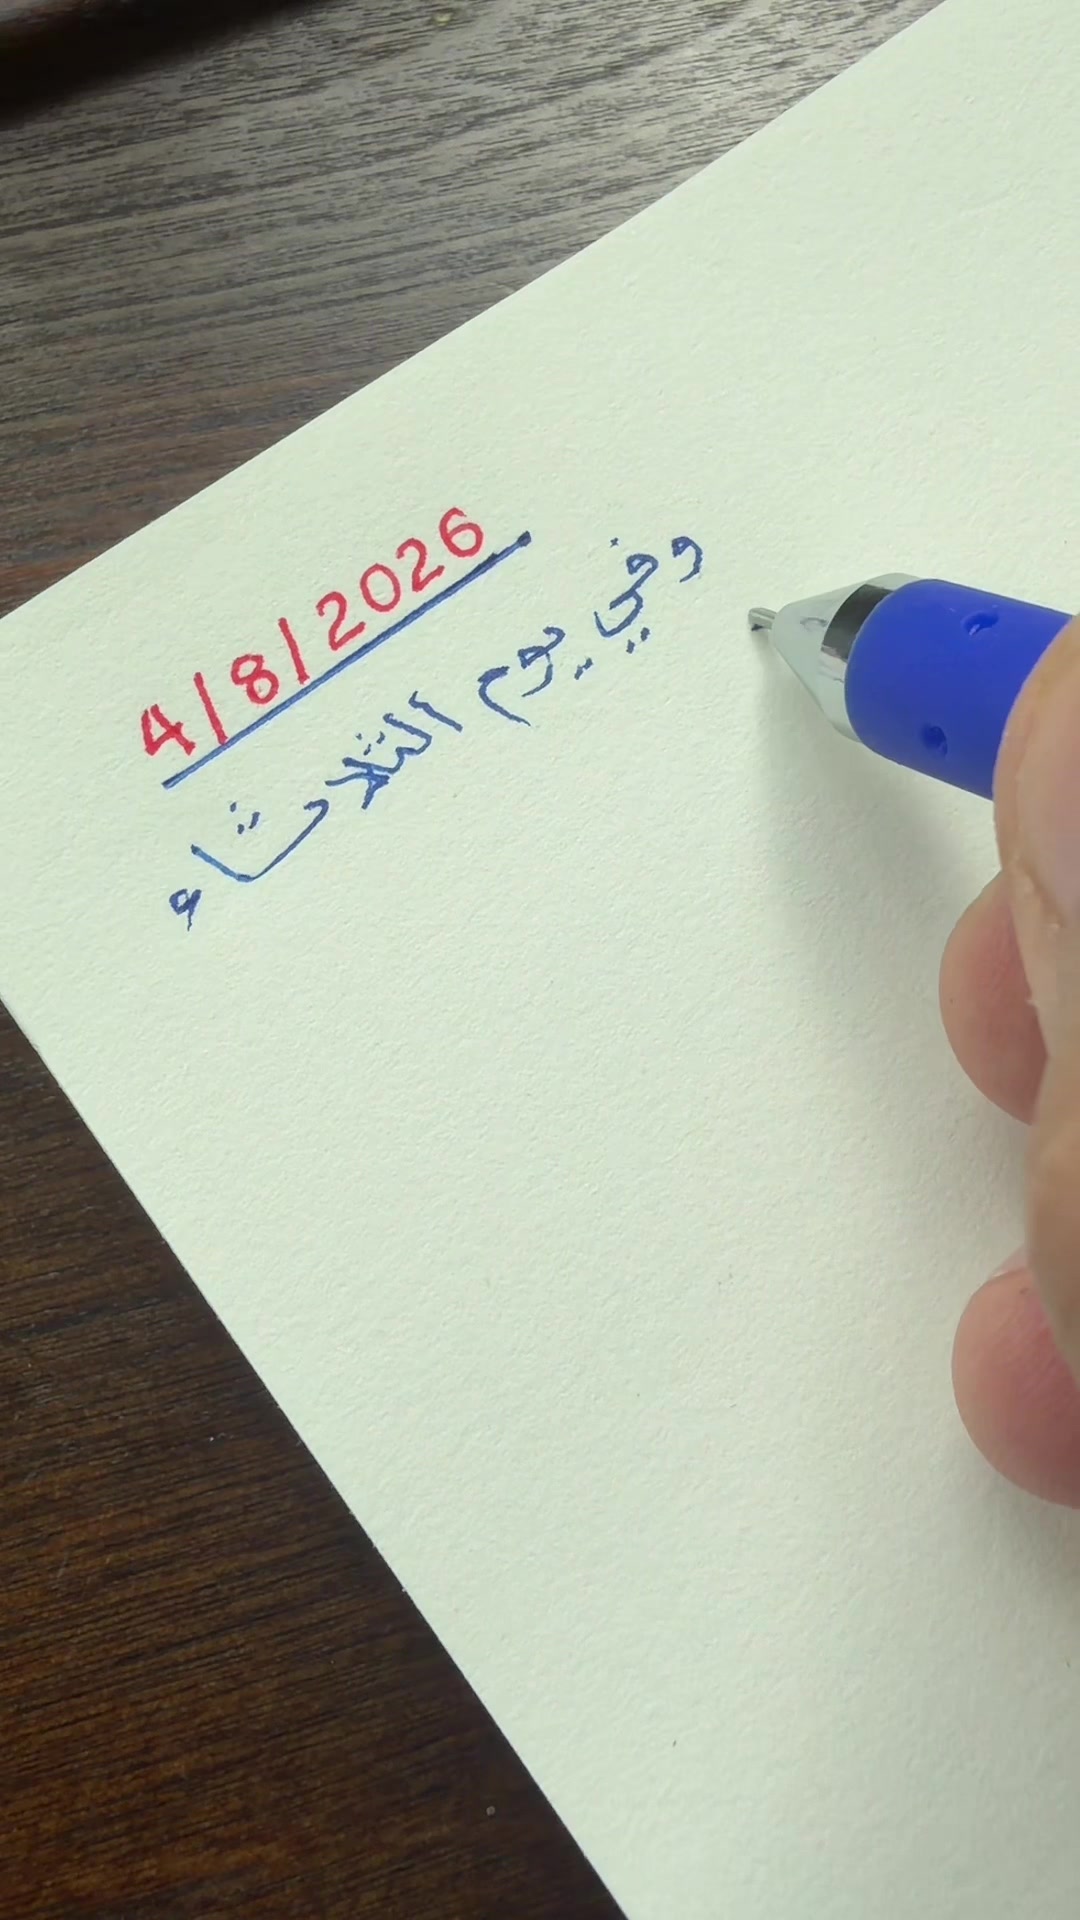 4/8/2026
وفي يوم الثلاثاء